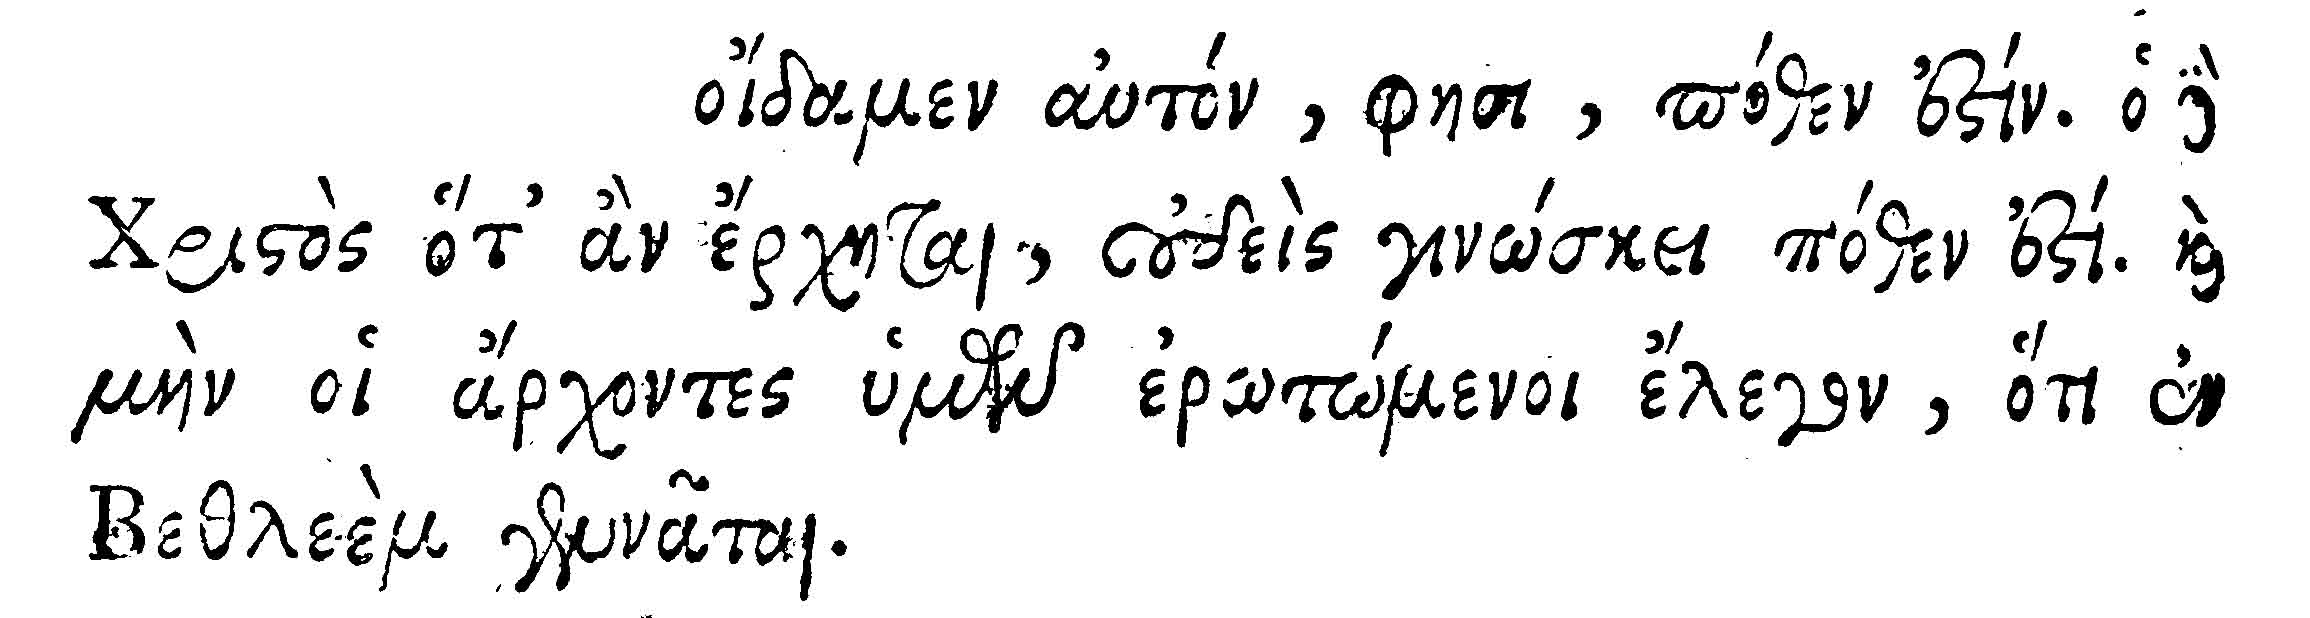 οἴδαμεν αὐτόν, φησι, πόθεν ἐστίν. ὁ δὲ
Χριστὸς ὅτ᾽ ἂν ἔρχηται, οὐδεὶς γινώσκει πόθεν ἐστί. καὶ
μὴν οἱ ἄρχοντες ὑμῶν ἐρωτώμενοι ἔλεγον, ὅτι ἐν
Βεθλεὲμ γεννᾶται.